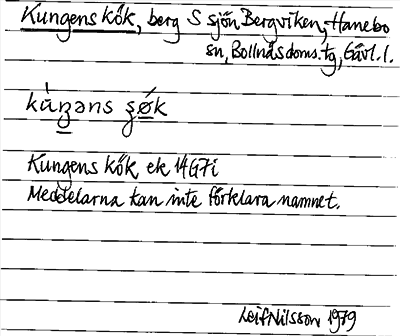 Kungens kök, berg S sjön Bergviken, Hanebo
sn, Bollnäs doms. tg, Gävl. l.
kùŋəns şǿk
Kungens kök, ek 14G7i
Meddelarna kan inte förklara namnet.
Leif Nilsson 1979